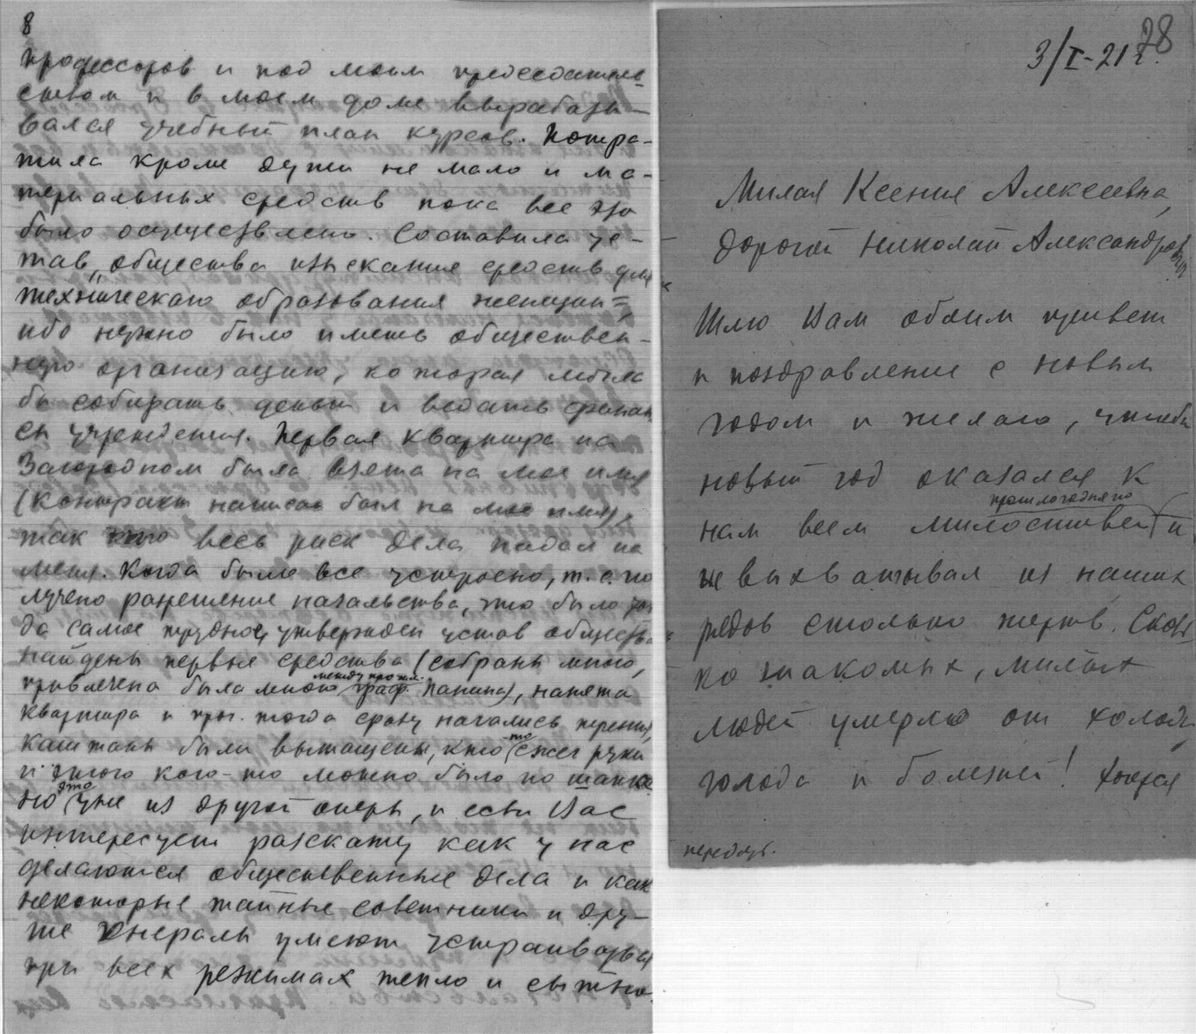 8
профессоров и под моим председатель-
ством и в моем доме вырабаты-
вался учебный план курсов. Потра-
тила кроме души не мало и ма-
териальных средств пока все это
было осуществлено. Составила ус-
тав „общества изыскания средств для
технического образования женщин"=
ибо нужно было иметь обществен-
ную организацию, которая могла
бы собирать деньги и ведать финан
сы учреждения. Первая квартира на
Загородном была взята на мое имя
(контракт написан был на мое имя),
так что весь риск дела падал на
меня. Когда было все устроено, т.е. по
лучено разрешение начальства, это было
да самое трудное, утвержден устав общества
найдены первые средства (собраны мною,
привлечена была мною между проч. граф. Панина), нанята
квартира и пр. тогда сразу начались
каштаны были вытащены, кто то сжег руки
и этого кого-то можно было по шапке
но это уже из другой оперы, и если Вас
интересует разскажу как у нас
делаются общественные дела и как
некоторые тайные советники и дру-
гие генералы умеют устраиваться
при всех режимах тепло и сытно.
28
3/I-21 г.
Милая Ксения Алексеевна,
дорогой Николай Александрович
Шлю Вам обоим привет
и поздравление с новым
годом и желаю, чтобы
новый год оказался к
нам всем милостивей прошлогоднего и
не выхватывал из наших
рядов столько жертв. Сколь
ко знакомых, милых
людей умерло от холода,
голода и болезней! Хоте